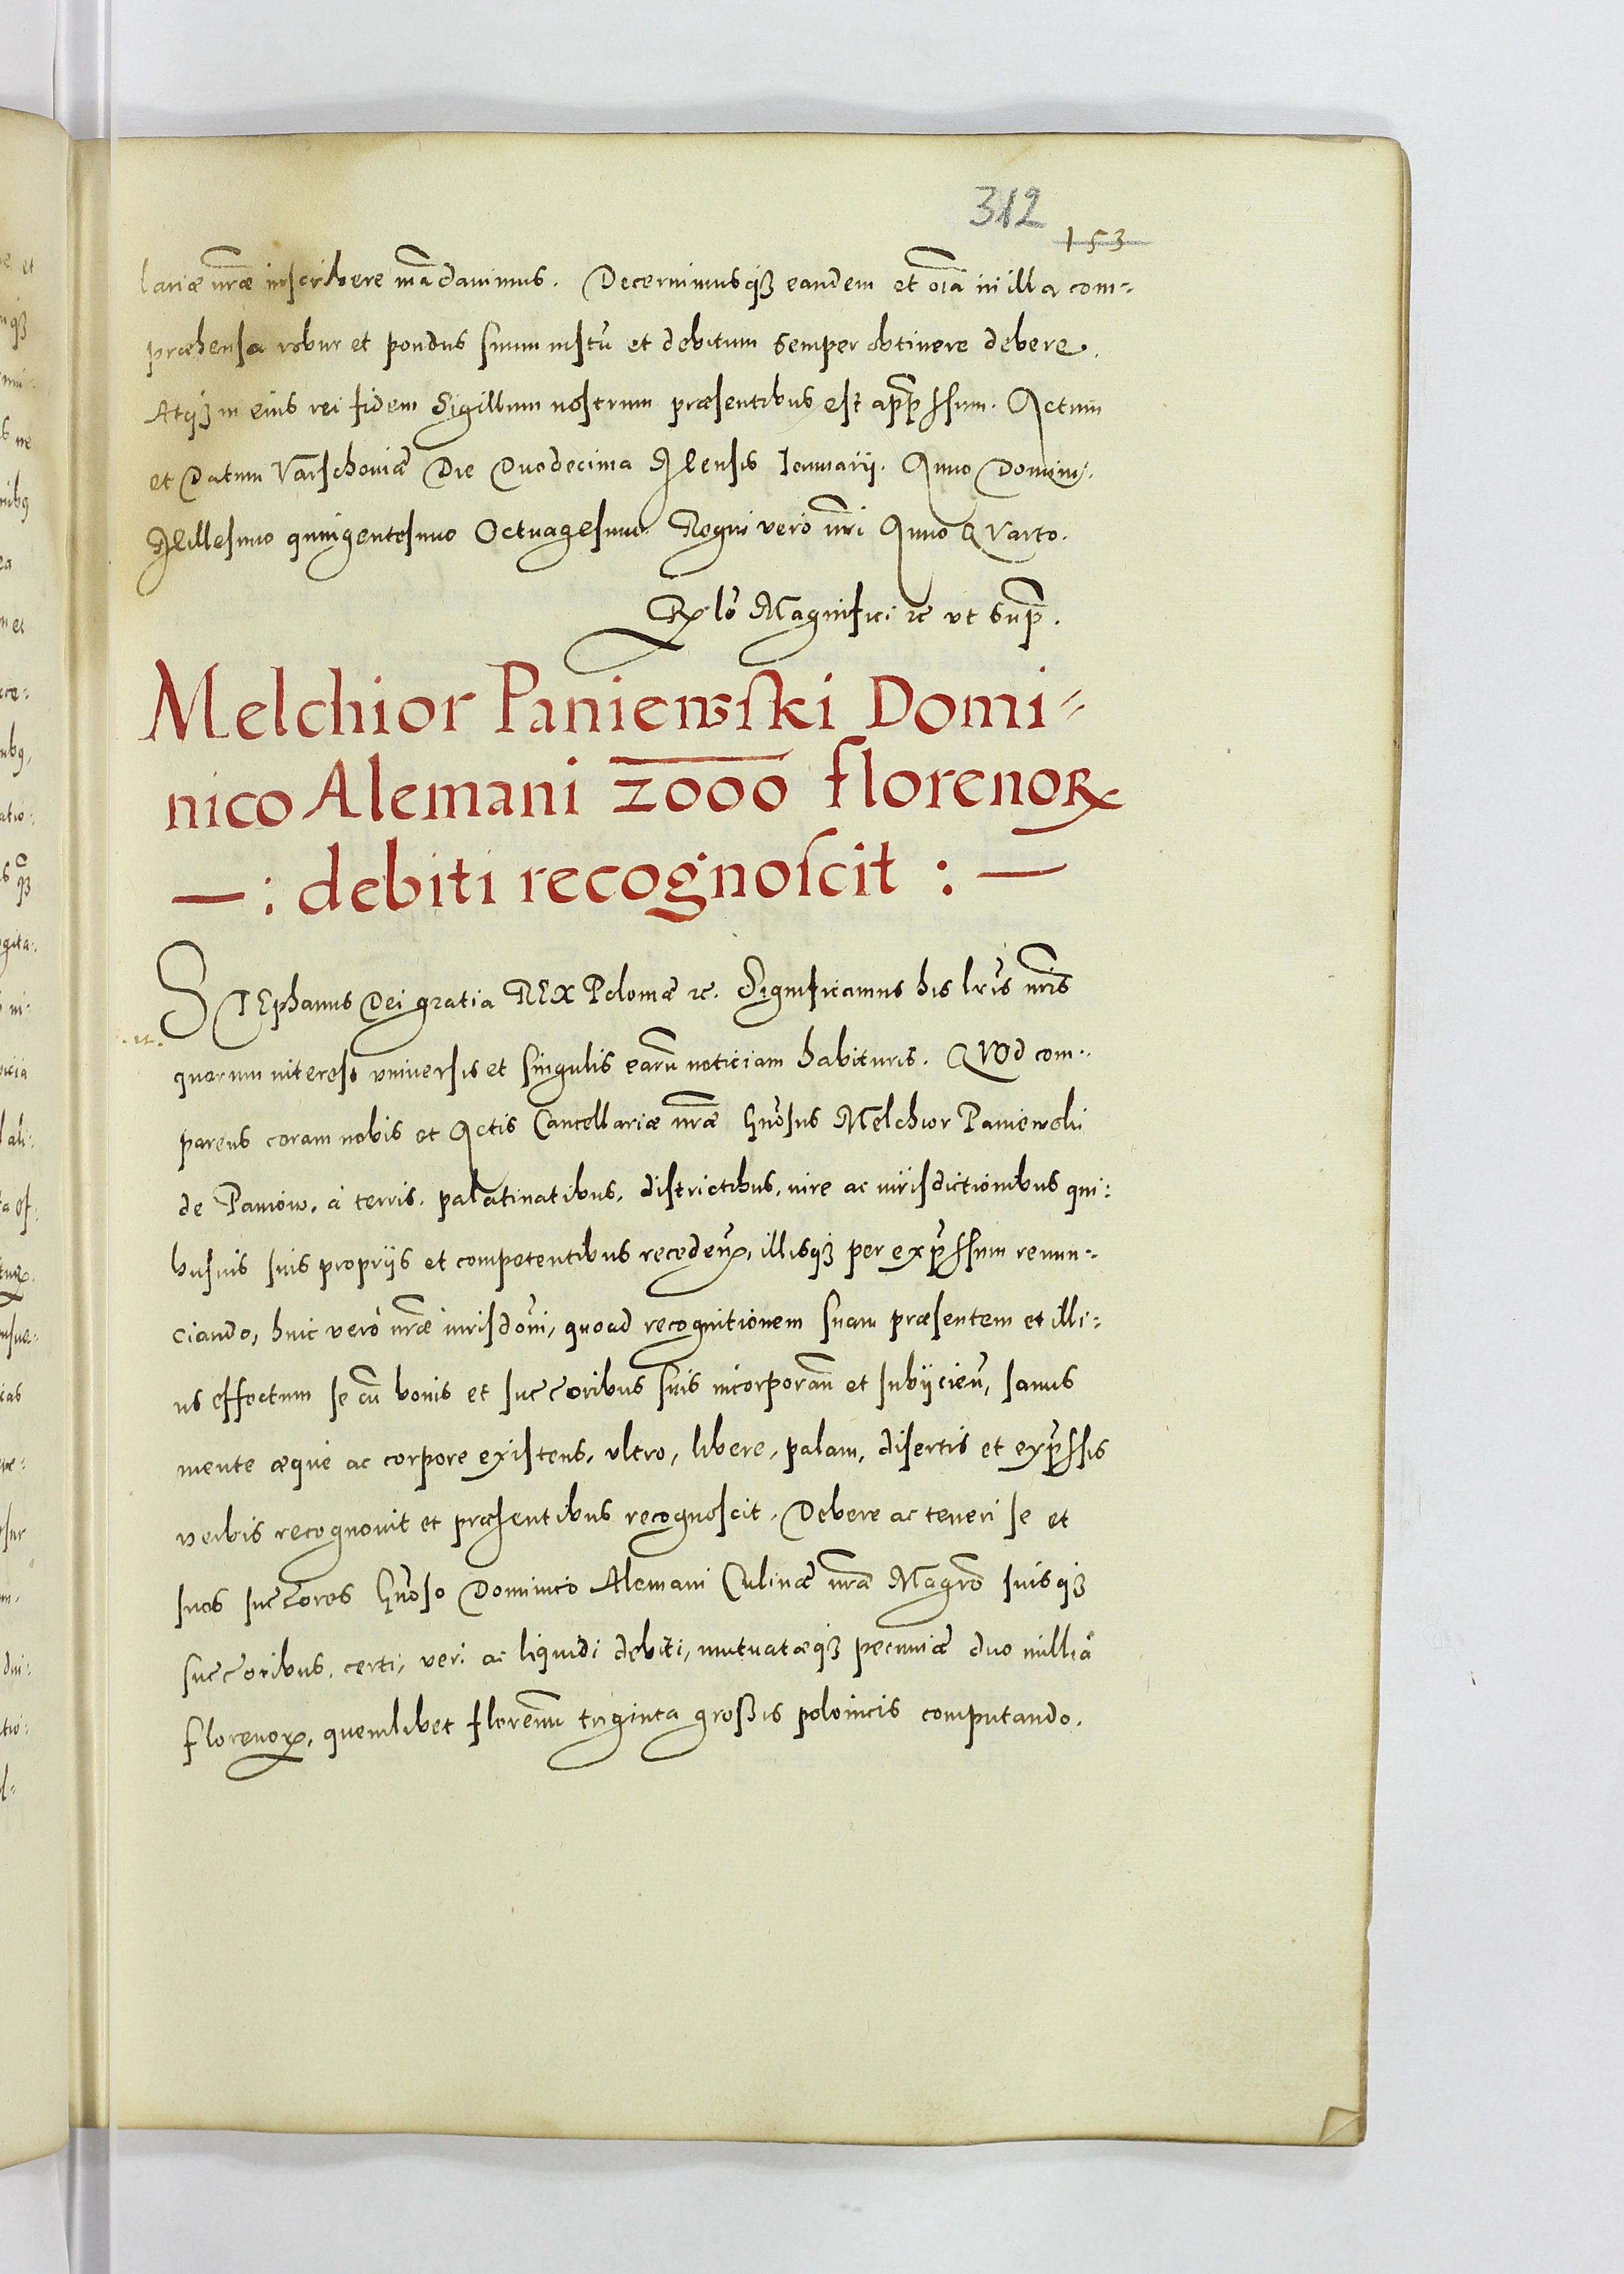 312
153
lariæ nr̃æ inscribere mãdavimus. Decernimusqȝ eandem et oĩa in illa com-
præhensa robur et pondus suum iustũ et debitum semper obtinere debere.
Atqȝ in eius rei fidem Sigillum nostrum præsentibus est app̃ssum. Actum
et Datum Varschoviæ Die Duodecima Mensis Ianuarii. Anno Domini.
Millesimo quingentesimo Octuagesimo. Regni vero nr̃i Anno QVarto.
Rel̃o Magnifici ꝛc ut Sup̃.
Melchior Paniewski Domi-
nico Alemani 2000 florenoꝝ
— : debiti recognoscit : —
STEphanus Dei gratia REX Poloniæ ꝛc. Significamus his lr̃is nr̃is
quorum interest universis et singulis earũ noticiam habituris. QVOd com-
parens coram nobis et Actis Cancellariæ nr̃æ Gñosus Melchior Paniewski
de Paniow, à terris, palatinatibus, districtibus, iure ac iurisdictionibus qui:
busvis suis propriis et competentibus recedeñ, illisqȝ per exp̃ssum renun-
ciando, huic verò nr̃æ iurisdoñi, quoad recognitionem suam præsentem et illi:
us effectum se cũ bonis et succoribus suis incorporañ et subiicieñ, sanus
mente æque ac corpore existens, ultro, libere, palam, disertis et exp̃ssis
verbis recognovit et præsentibus recognoscit. Debere ac teneri se et
suos succores Gñoso Dominico Alemani Culinæ nr̃æ Magr̃o suisqȝ
succoribus, certi, veri ac liquidi debiti, mutuatæqȝ pecuniæ duo millia
florenoꝝ, quemlibet florenũ triginta grossis polonicis computando.